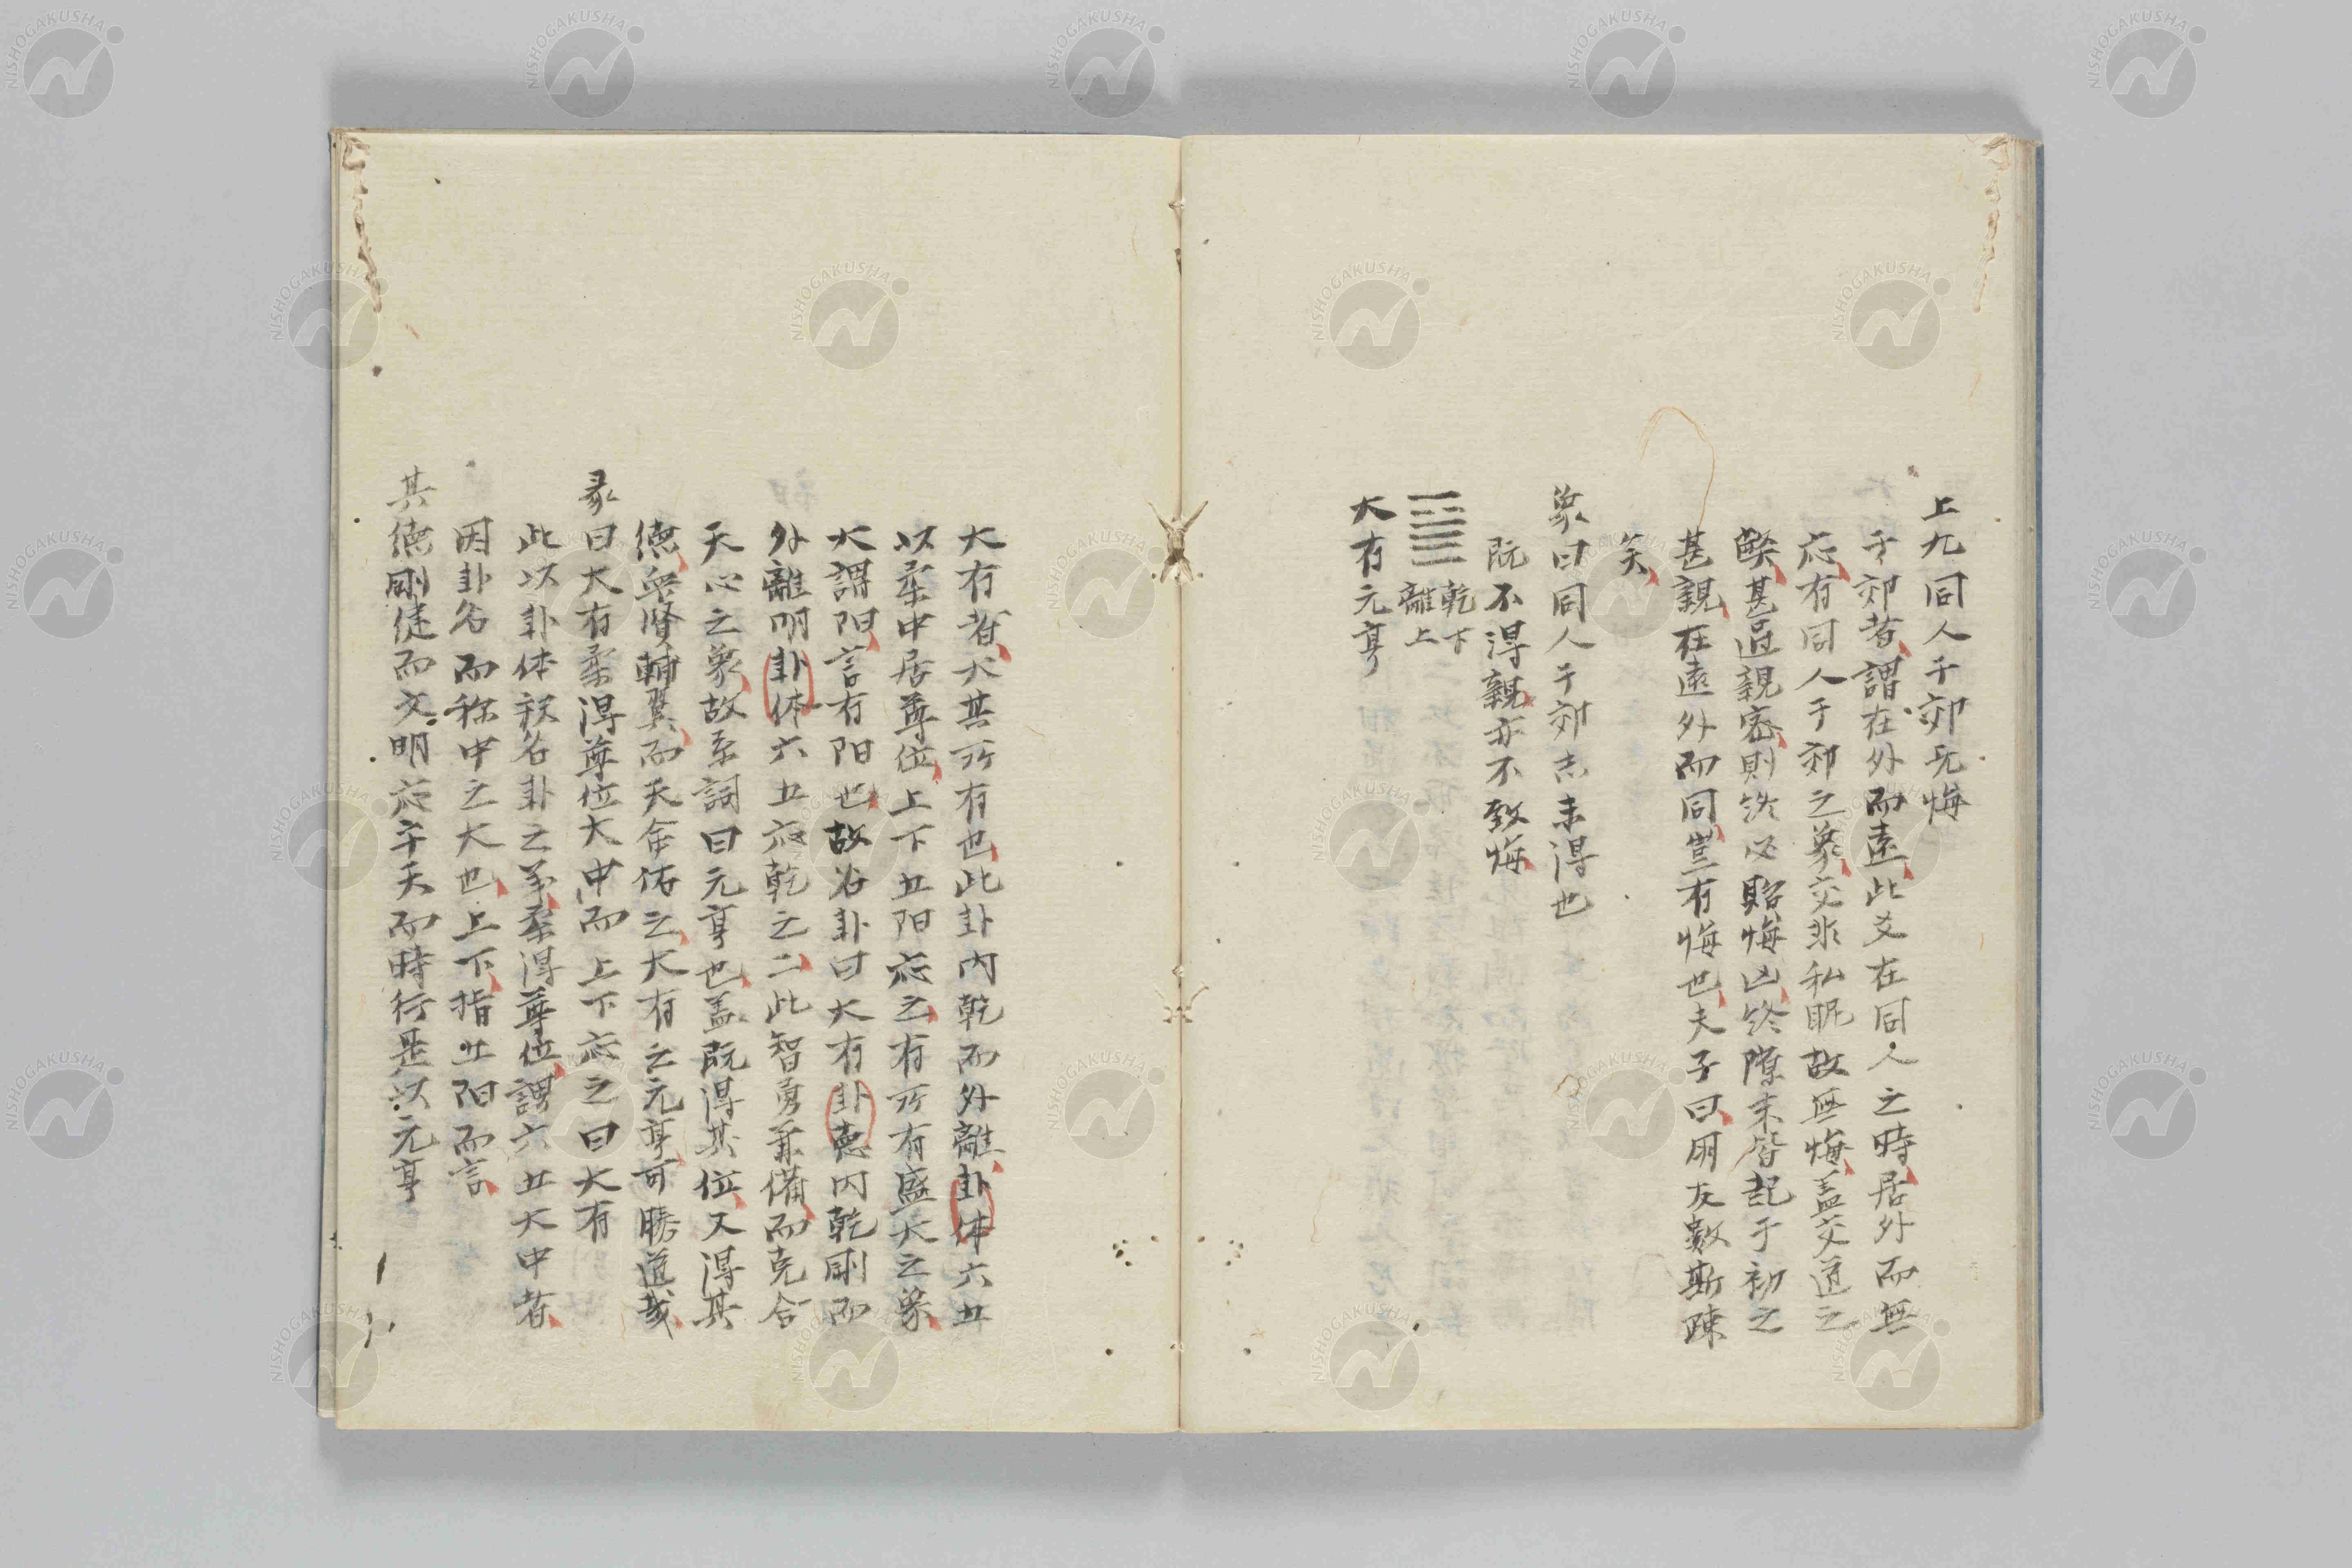 上九同人于郊无悔
于郊者謂在外而遠此爻在同人之時居外而無
応有同人于郊之象交非私昵故無悔蓋交道之
甚過親密則終必貽悔凶終隙末皆起于初之
甚親在遠外而同豈有悔也夫子曰朋友數斯疎
矣
象曰同人于郊志未得也
既不得親亦不致悔
乾下
離上
大有元亨
大有者大其所有也此卦内乾而外離卦体六五
以柔中居尊位上下五阳応之有所有盛大之象
大謂阳言有阳也故名卦曰大有卦徳内乾剛而
外離明卦体六五応乾之二此智勇兼備而克合
天心之象故系詞曰元亨也蓋既得其位又得其
徳衆賢輔翼而天命佑之大有之元亨可勝道哉
彖曰大有柔得尊位大中而上下応之曰大有
此以卦体釈名卦之羊柔得尊位謂六五大中者
因卦名而称中之大也上下指五阳而言
其徳剛健而文明応乎天而時行是以元亨
NISHOGAKUSHA